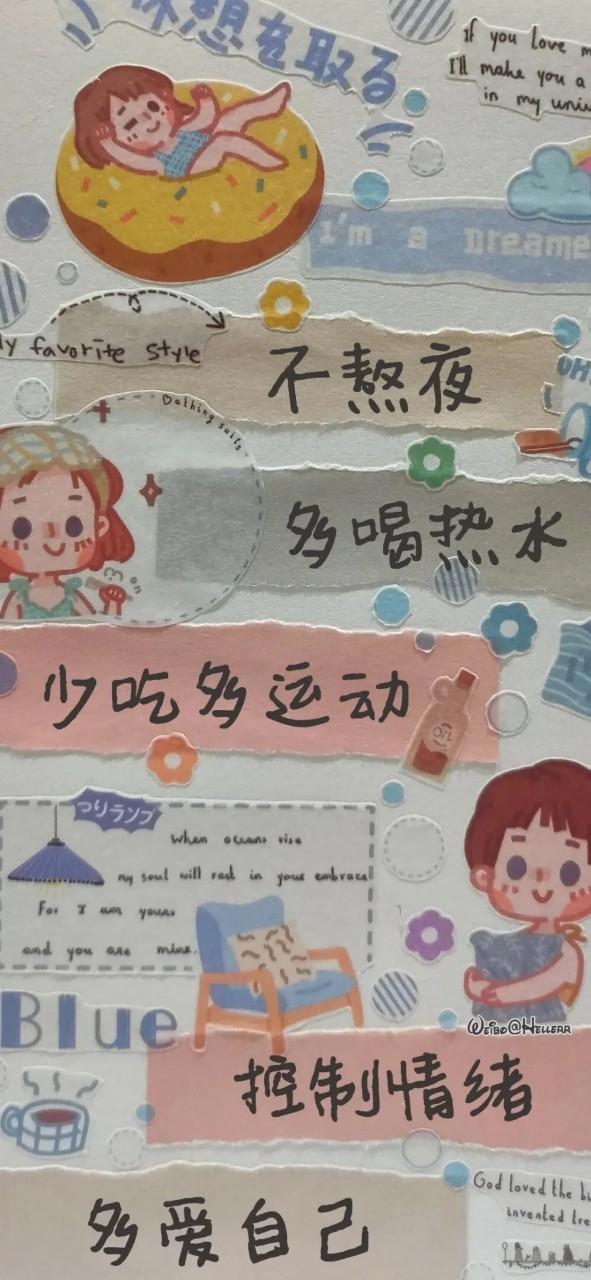 休想を取る
If you love m
I'll make you a
in my univ
I'm a Dreame
My favorite style
不熬夜
OH
Bathing suits
多喝热水
少吃多运动
OIL
つりランプ
When oceans rise
my soul will rest in your embrace
For I am yours
and you are mine.
Blue
Weibo@Hellerr
控制情绪
多爱自己
God loved the bi
invented tre